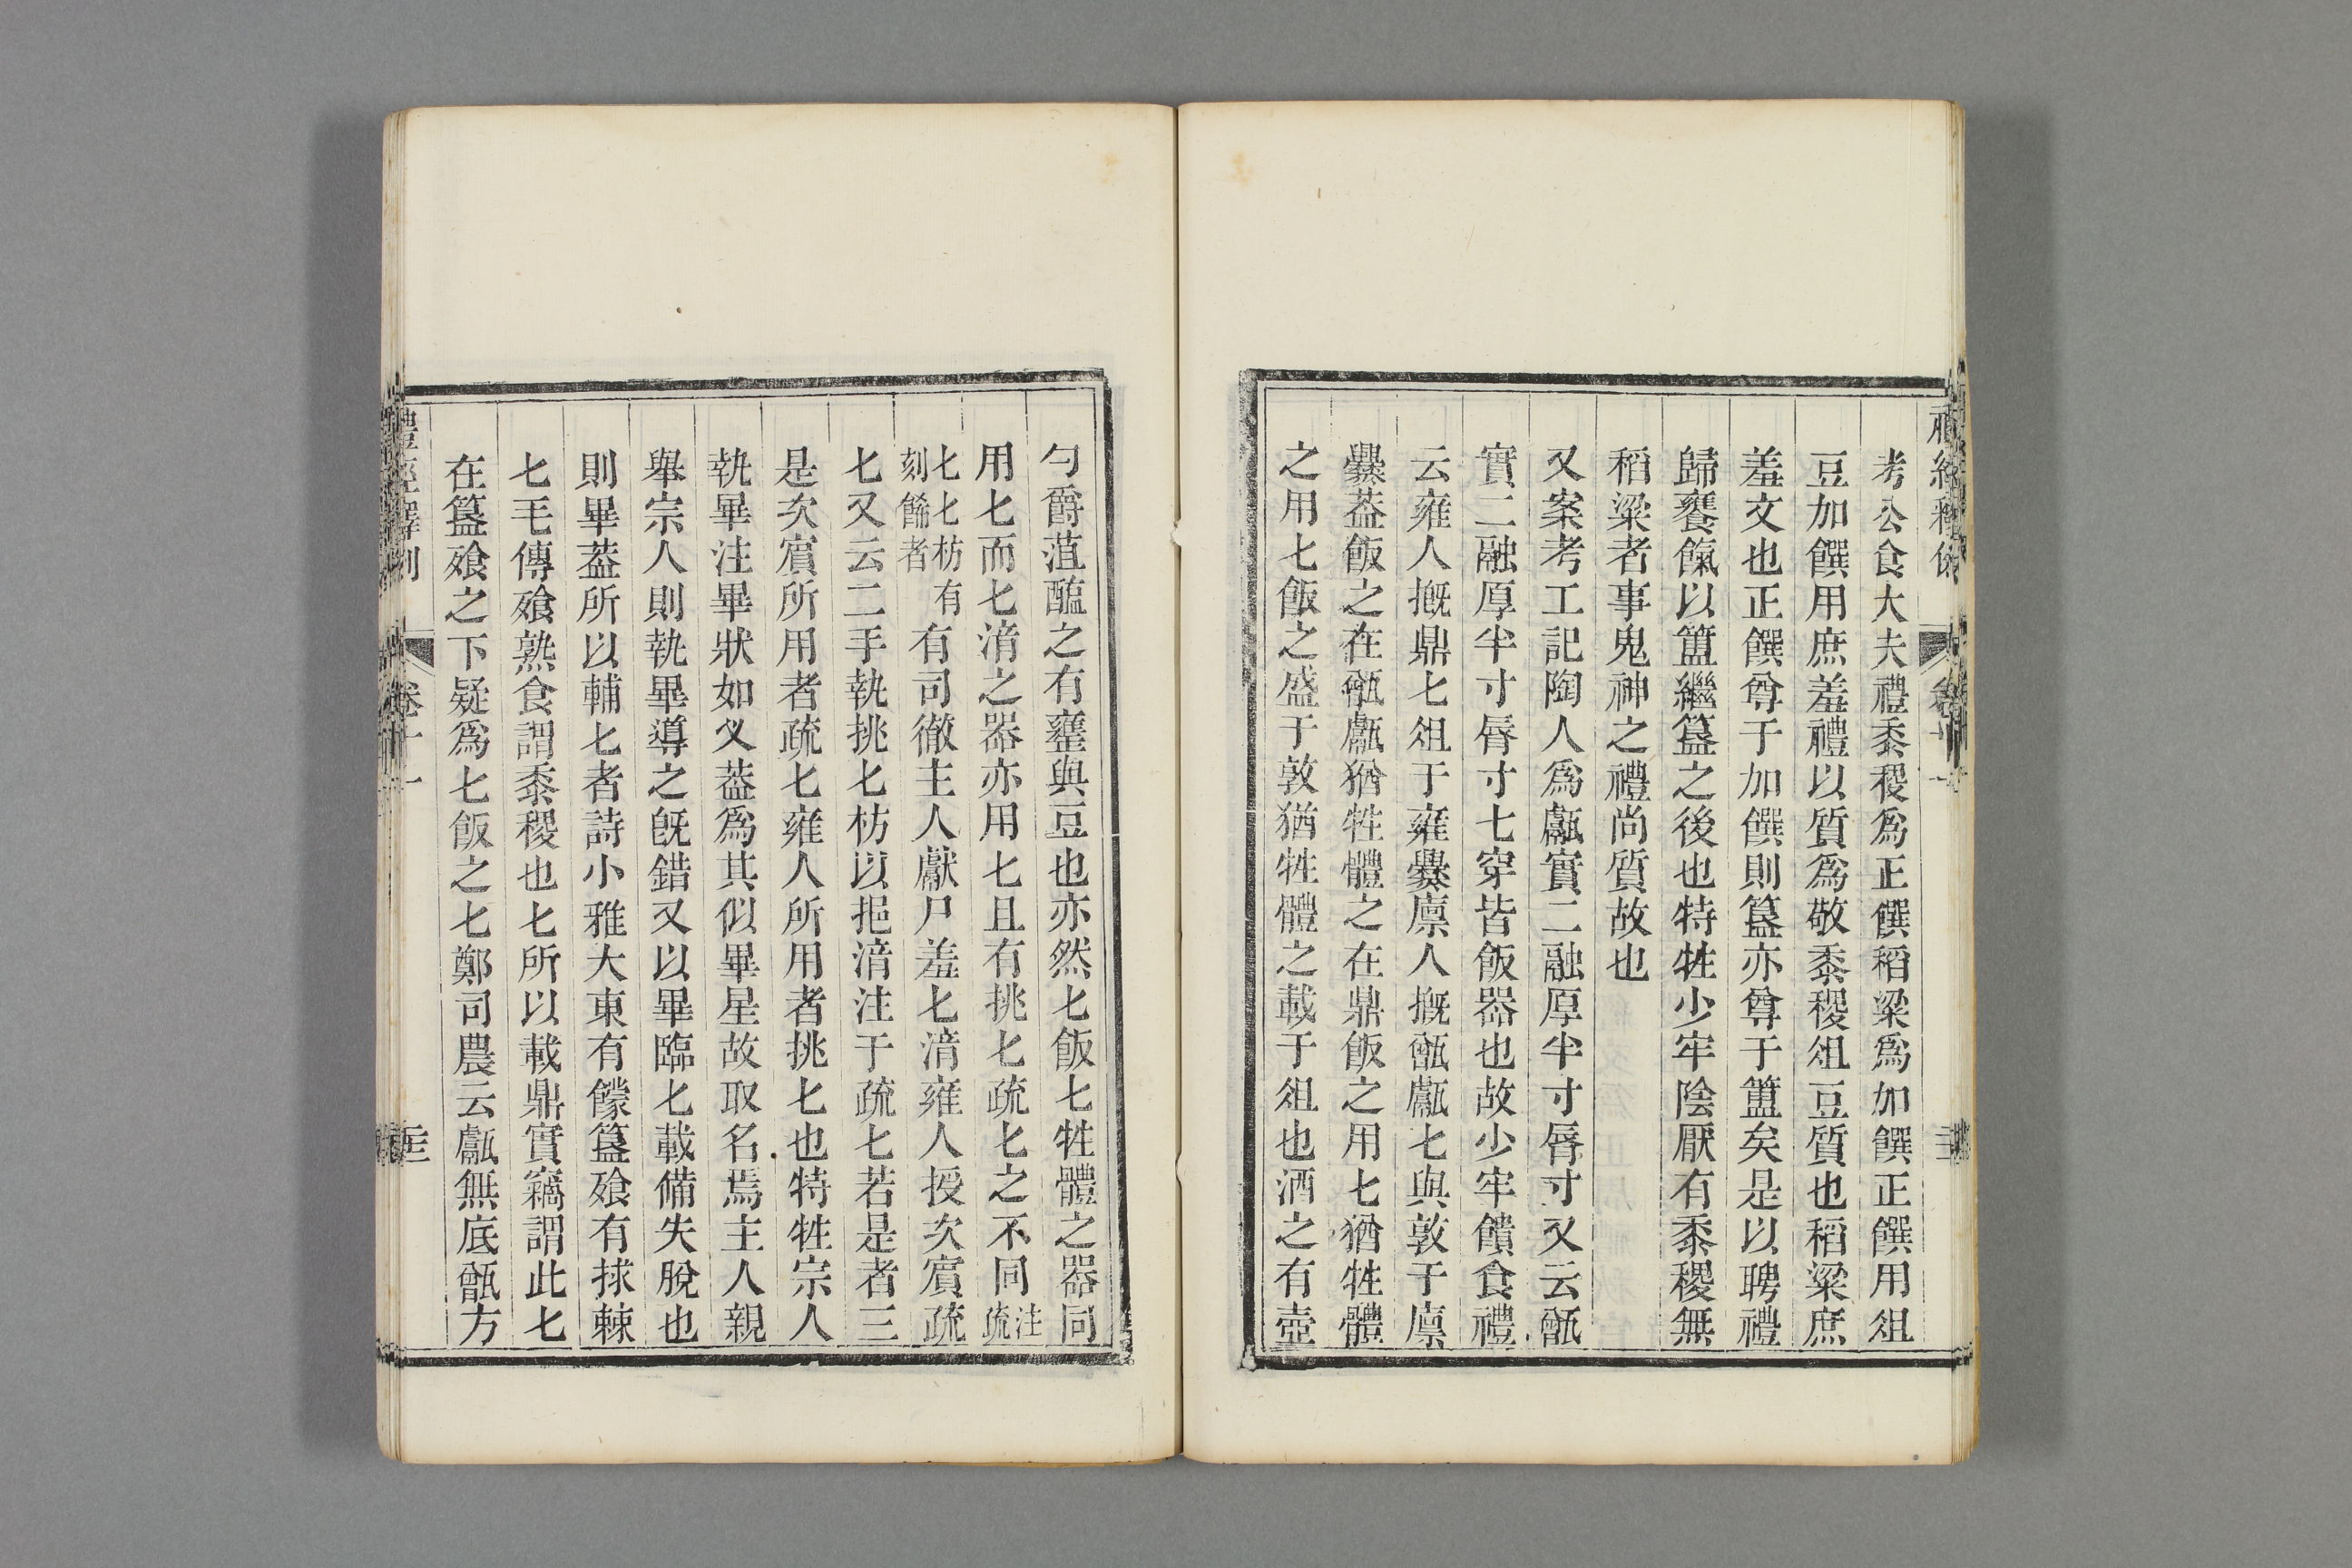 考公食大夫禮黍稷爲正饌稻粱爲加饌正饌用俎
豆加饌用庶羞禮以質爲敬黍稷俎豆質也稻粱庶
羞文也正饌尊于加饌則簋亦尊于簠矣是以聘禮
歸饔餼以簠繼簋之後也特牲少牢陰厭有黍稷無
稻粱者事鬼神之禮尚質故也
又案考工記陶人爲甗實二鬴厚半寸脣寸又云甑
實二鬴厚半寸脣寸七穿皆飯器也故少牢饋食禮
云雍人摡鼎匕俎于雍爨廩人摡甑甗匕與敦于廩
爨葢飯之在甑甗猶牲體之在鼎飯之用匕猶牲體
之用匕飯之盛于敦猶牲體之載于俎也酒之有壺
勺爵菹醢之有罋與豆也亦然匕飯匕牲體之器同
用匕而匕湆之器亦用匕且有挑匕疏匕之不同注疏
匕匕枋有刻餙者有司徹主人獻尸羞匕湆雍人授次賓疏
匕又云二手執挑匕枋以挹湆注于疏匕若是者三
是次賓所用者疏匕雍人所用者挑匕也特牲宗人
執畢注畢狀如义葢爲其似畢星故取名焉主人親
舉宗人則執畢導之旣錯又以畢臨匕載備失脫也
則畢葢所以輔匕者詩小雅大東有饛簋飧有捄棘
匕毛傳飧熟食謂黍稷也匕所以載鼎實竊謂此匕
在簋飧之下疑爲匕飯之匕鄭司農云甗無底甑方
禮經釋例
卷十一